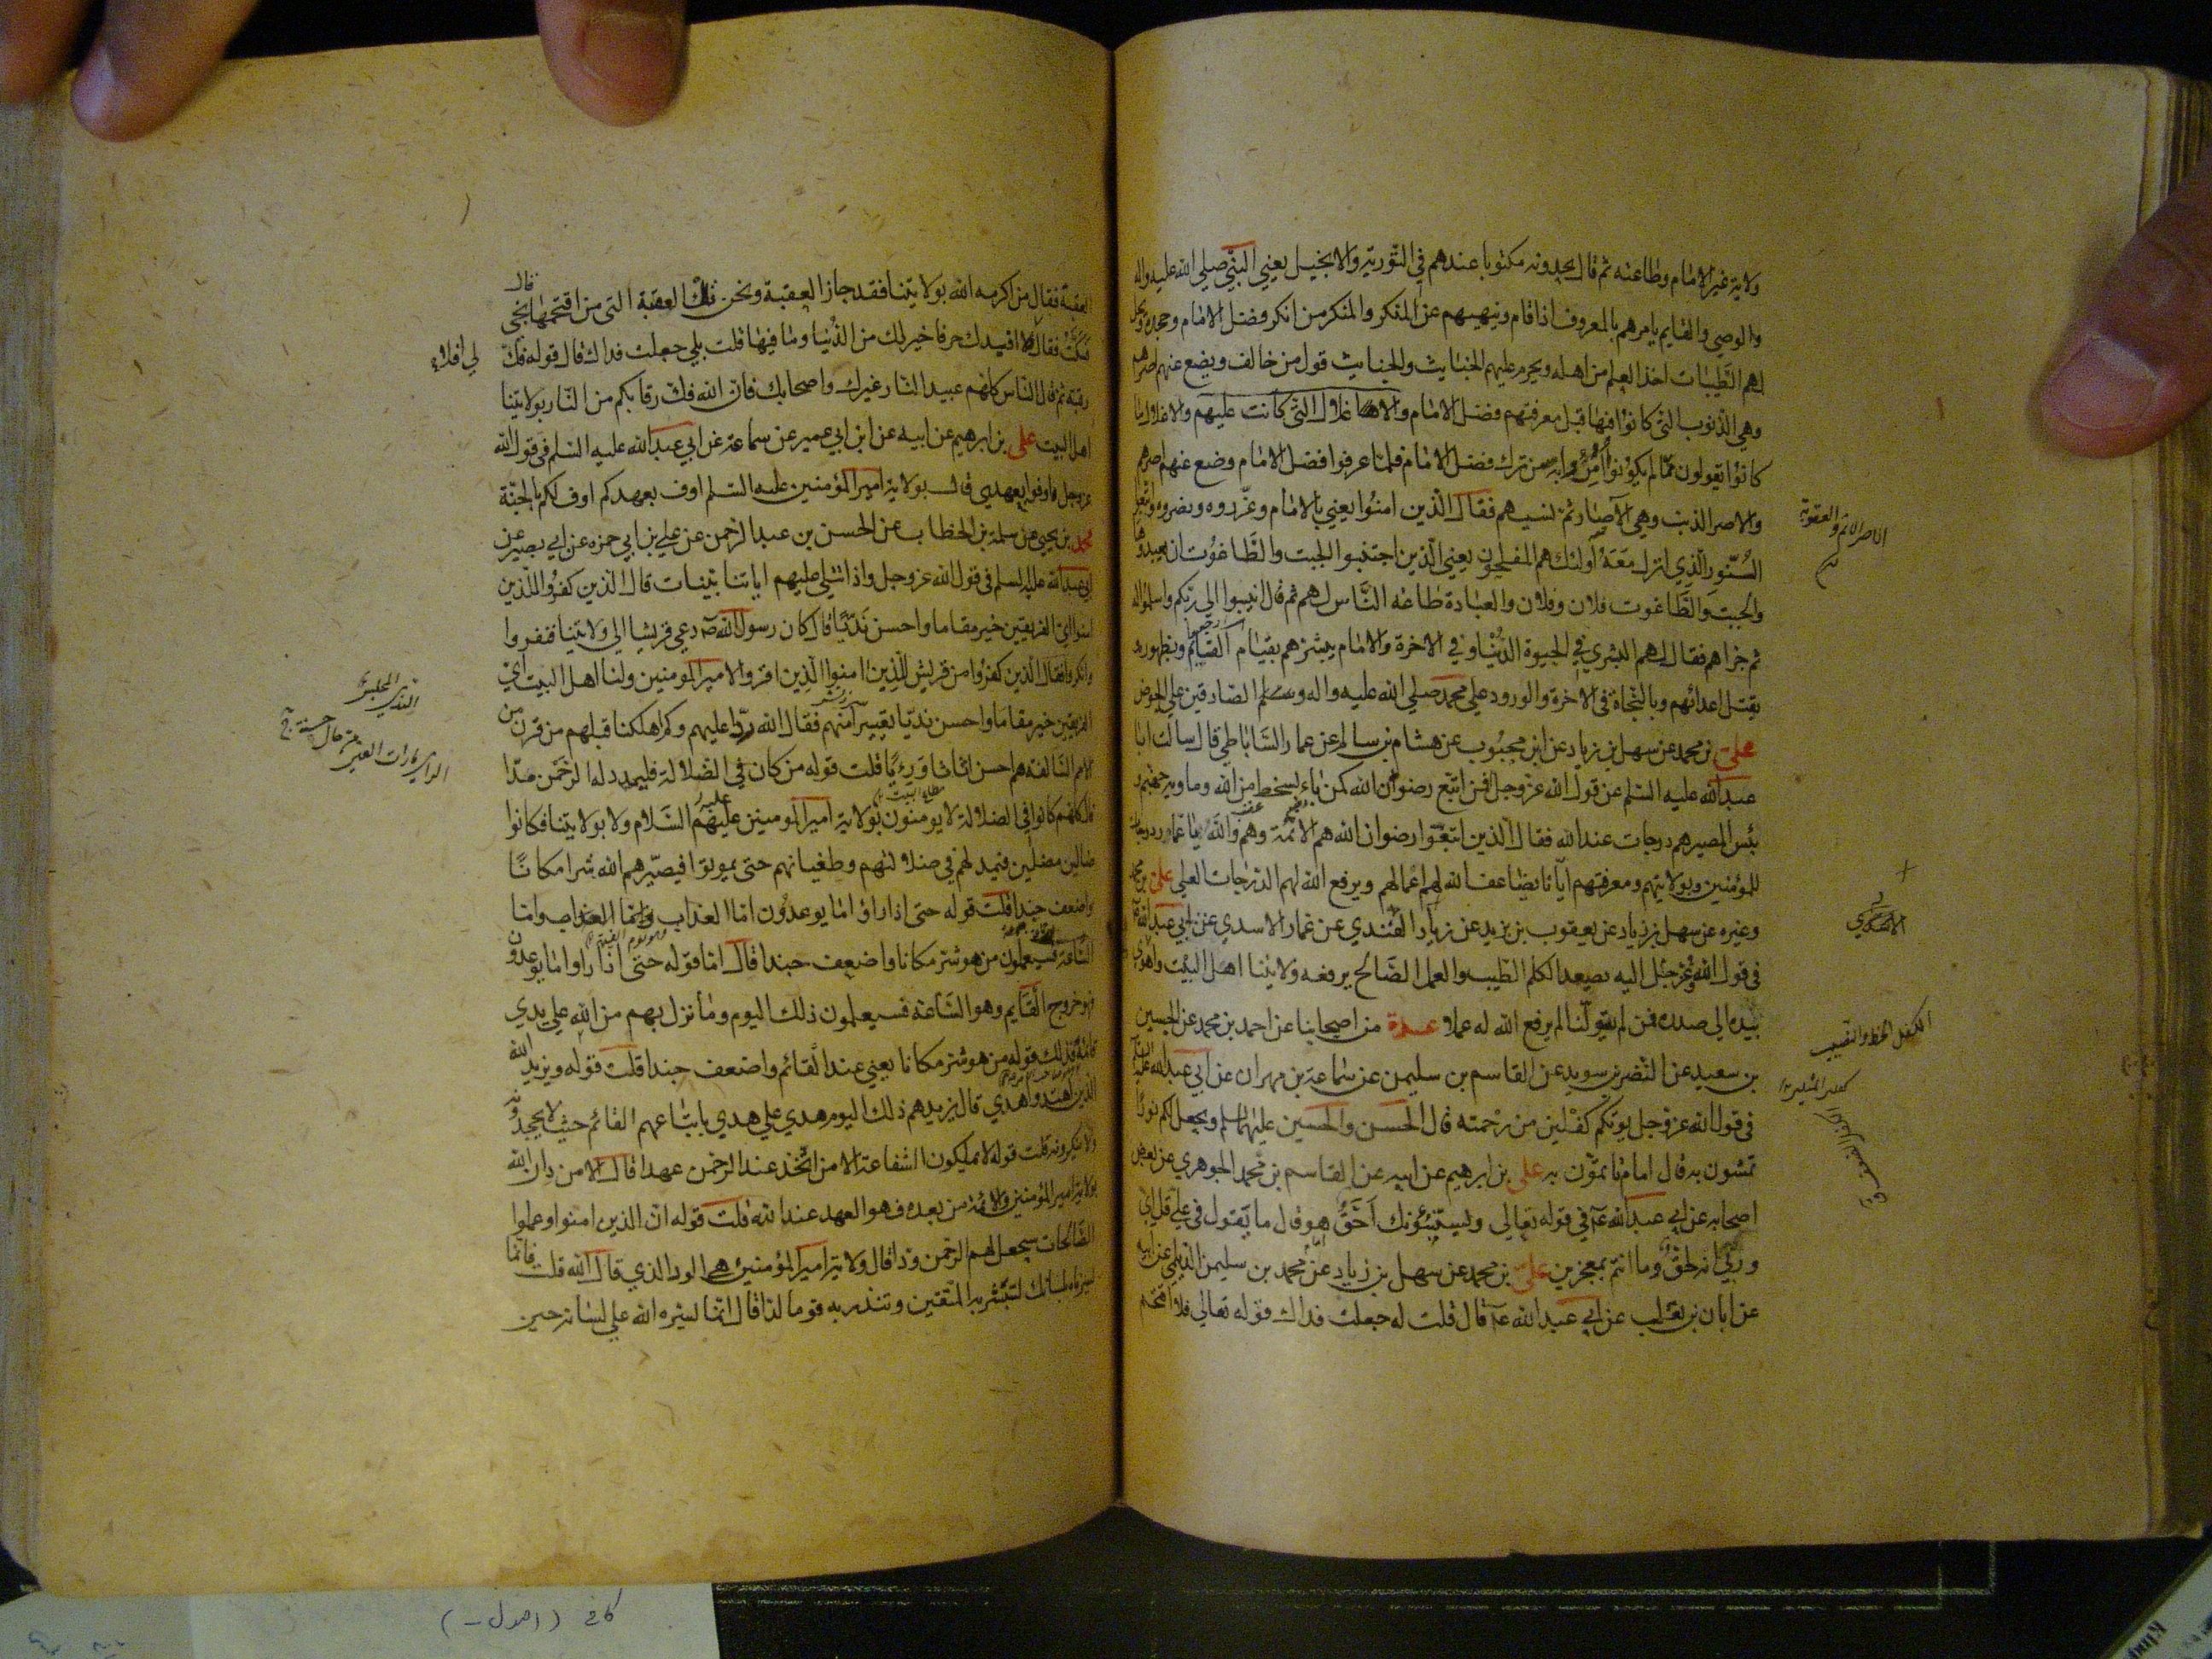 ولاية غير الامام وطاعته ثم قال يجدونه مكتوبا عندهم في التورية والانجيل يعني النبي صلى الله عليه واله
والوصي والقايم يامرهم بالمعروف اذا قام وينهيهم عن المنكر والمنكر من انكر فضل الامام وجحده ويحل
لهم الطيبات اخذ العلم من اهله ويحرم عليهم الخبايث والخبايث قول من خالف ويضع عنهم اصرهم
وهي الذنوب التي كانوا فيها قبل معرفتهم فضل الامام والاغلال التي كانت عليهم والاغلال ما
كانوا يقولون مما لم يكونوا امروا به من ترك فضل الامام فلما عرفوا فضل الامام وضع عنهم اصرهم
والاصر الذنب وهي الآصار ثم نسبهم فقال الذين امنوا يعني بالامام وعزروه ونصروه واتبعوا
النور الذي انزل معه اولئك هم المفلحون يعني الذين اجتنبوا الجبت والطاغوت ان يعبدوها
والجبت والطاغوت فلان وفلان والعبادة طاعة الناس لهم ثم قال انيبوا الى ربكم واسلموا له
ثم جزاهم فقال لهم البشرى في الحيوة الدنيا وفي الاخرة والامام يبشرهم بقيام القايم وبظهوره
بقتل اعدائهم وبالنجاة في الاخرة والورود على محمد صلى الله عليه واله وسلم الصادقين على الحوض
علي بن محمد عن سهل بن زياد عن ابن محبوب عن هشام بن سالم عن عمار الساباطي قال سالت ابا
عبد الله عليه السلم عن قول الله عز وجل افمن اتبع رضوان الله كمن باء بسخط من الله وماويه جهنم و
بئس المصير هم درجات عند الله فقال الذين اتبعوا رضوان الله هم الائمة وهم والله يا عمار درجات
للمؤمنين وبولايتهم ومعرفتهم ايانا يضاعف الله لهم اعمالهم ويرفع الله لهم الدرجات العلى علي بن محمد
وغيره عن سهل بن زياد عن يعقوب بن يزيد عن زياد القندي عن عمار الاسدي عن ابي عبد الله ع
في قول الله عز وجل اليه يصعد الكلم الطيب والعمل الصالح يرفعه ولايتنا اهل البيت واهوى
بيده الى صدره فمن لم يتولنا لم يرفع الله له عملا عدة من اصحابنا عن احمد بن محمد عن الحسين
بن سعيد عن النضر بن سويد عن القاسم بن سليمن عن سماعة بن مهران عن ابي عبد الله عليه السلم
في قول الله عز وجل يوتكم كفلين من رحمته قال الحسن والحسين عليهما السلم ويجعل لكم نورا
تمشون به قال امام تاتمون به علي بن ابرهيم عن ابيه عن القاسم بن محمد الجوهري عن بعض
اصحابه عن ابي عبد الله ع في قوله تعالى ويستنبؤنك احق هو قال ما تقول في علي قل اي
وربي انه لحق وما انتم بمعجزين علي بن محمد عن سهل بن زياد عن محمد بن سليمن الديلمي عن ابيه
عن ابان بن تغلب عن ابي عبد الله ع قال قلت له جعلت فداك قوله تعالى فلا اقتحم
الاصر الاثم والعقوبة
الكفل الحظ والنصيب
العقبة فقال من اكرمه الله بولايتنا فقد جاز العقبة ونحن تلك العقبة التي من اقتحمها نجى قال
فسكت فقال لي افلا افيدك حرفا خير لك من الدنيا وما فيها قلت بلى جعلت فداك قال قوله فك
رقبة ثم قال الناس كلهم عبيد النار غيرك واصحابك فان الله فك رقابكم من النار بولايتنا
اهل البيت علي بن ابرهيم عن ابيه عن ابن ابي عمير عن سماعة عن ابي عبد الله عليه السلم في قول الله
عز وجل واوفوا بعهدي قال بولاية امير المؤمنين عليه السلم اوف بعهدكم اوف لكم بالجنة
محمد بن يحيى عن سلمة بن الخطاب عن الحسن بن عبد الرحمن عن علي بن ابي حمزه عن ابي بصير عن
ابي عبد الله عليه السلم في قول الله عز وجل واذا تتلى عليهم اياتنا بينات قال الذين كفروا للذين
امنوا اي الفريقين خير مقاما واحسن نديا قال كان رسول الله ص دعى قريشا الى ولايتنا فنفروا
وانكروا فقال الذين كفروا من قريش للذين امنوا الذين اقروا لامير المومنين ولنا اهل البيت اي
الفريقين خير مقاما واحسن نديا تعييرا منهم فقال الله ردا عليهم وكم اهلكنا قبلهم من قرن من
الامم السالفة هم احسن اثاثا ورءيا قلت قوله من كان في الضلالة فليمدد له الرحمن مدا
قال كلهم كانوا في الضلالة لا يومنون بولاية امير المومنين عليهم السلام ولا بولايتنا فكانوا
ضالين مضلين فيمد لهم في ضلالتهم وطغيانهم حتى يموتوا فيصيرهم الله شرا مكانا
واضعف جندا قلت قوله حتى اذا راوا ما يوعدون اما العذاب واما
الساعة فسيعلمون من هو شر مكانا واضعف جندا قال اما قوله حتى اذا راوا ما يوعدون
فهو خروج القايم وهو الساعة فسيعلمون ذلك اليوم وما نزل بهم من الله على يدي
قائمه فذلك قوله من هو شر مكانا يعني عند القائم واضعف جندا قلت قوله ويزيد الله
الذين اهتدوا هدى قال يزيدهم ذلك اليوم هدى على هدى باتباعهم القائم حيث لا يجحدونه
ولا ينكرونه قلت قوله لا يملكون الشفاعة الا من اتخذ عند الرحمن عهدا قال الا من دان الله
بولاية امير المؤمنين والائمة من بعده فهو العهد عند الله قلت قوله ان الذين امنوا وعملوا
الصالحات سيجعل لهم الرحمن ودا قال ولاية امير المؤمنين هي الود الذي قال الله قلت فانما
يسرناه بلسانك لتبشر به المتقين وتنذر به قوما لدا قال انما يسره الله على لسانه حين
لي افلا
الندي المجلس
كافي (اصول -)